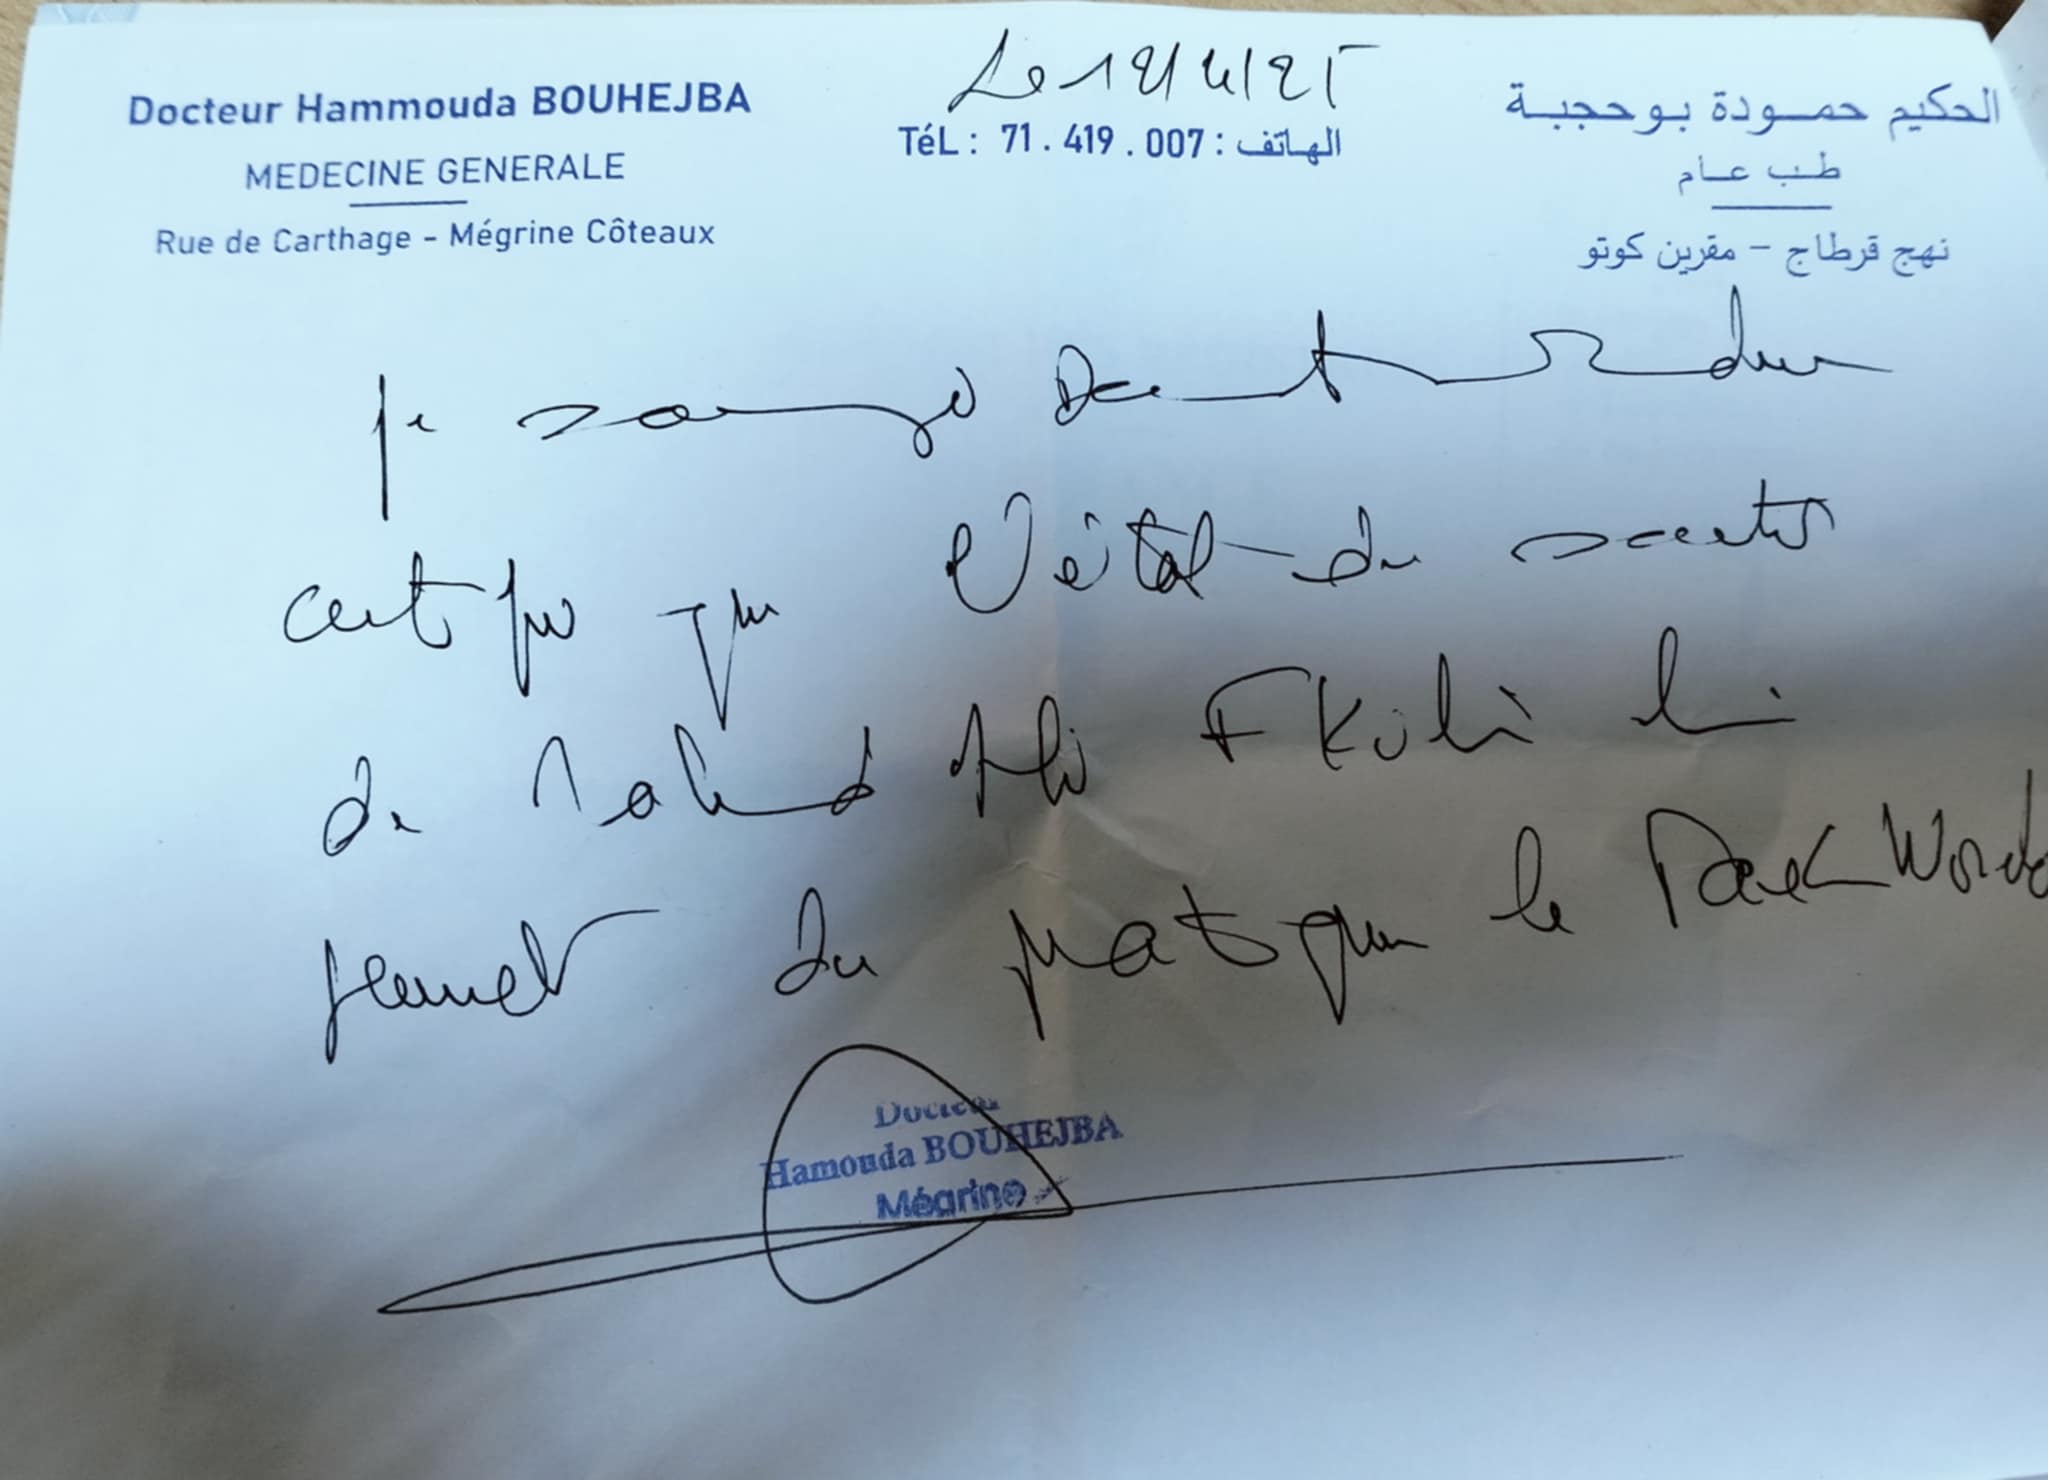 Le 12/4/25
Docteur Hammouda BOUHEJBA
MEDECINE GENERALE
Rue de Carthage - Mégrine Côteaux
TéL : 71 . 419 . 007 : الهاتف
الحكيم حمودة بوحجبة
طب عام
نهج قرطاج - مقرين كوتو
Je soussigné Docteur
certifie que l'état de santé
de Ali Fkih lui
permet de pratiquer le
Docteur
Hamouda BOUHEJBA
Mégrine